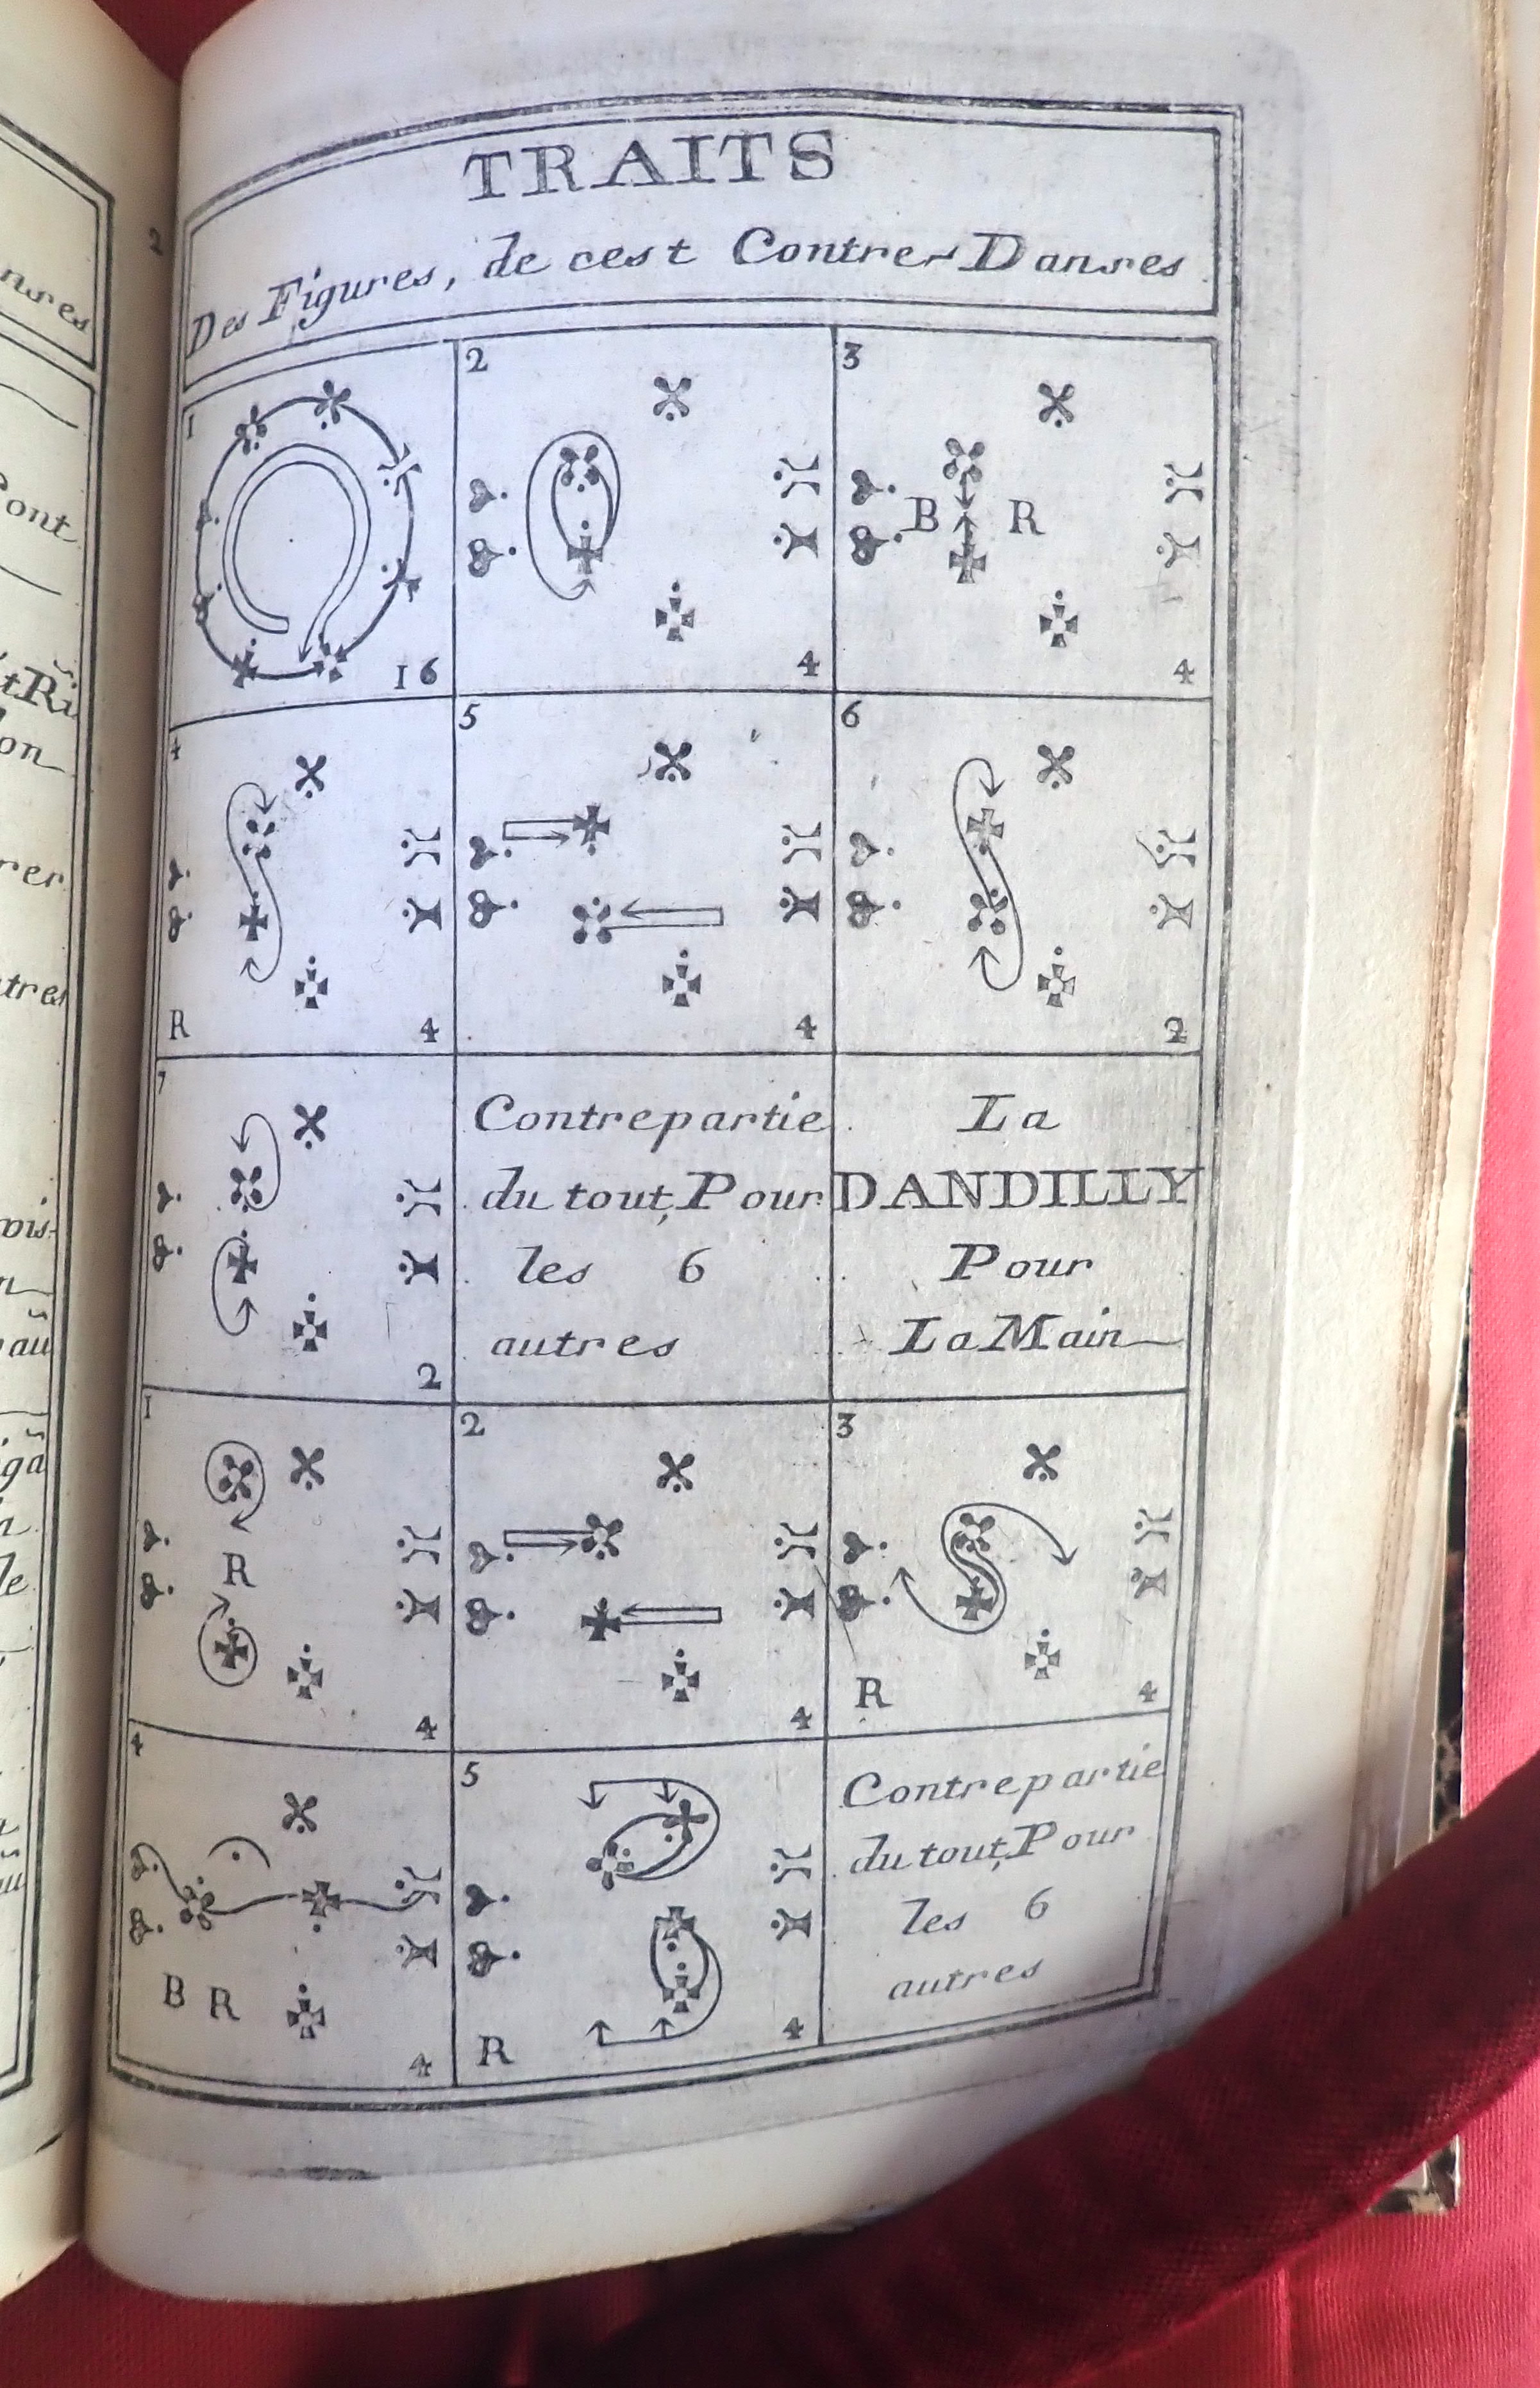 TRAITS
Des Figures, de cest Contres Danses
1 16
2 4
3 B R 4
4 R 4
5 4
6 2
7 2
Contrepartie
du tout, Pour
les 6
autres
La
DANDILLY
Pour
La Main
1 R 4
2 4
3 R 4
4 B R 4
5 R 4
Contrepartie
du tout, Pour
les 6
autres